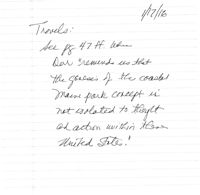 1/17/16
Travels:
See pg 47 ff. when
Dorr reminds us that
the genesis of the coastal
Maine park concept is
not isolated to thought
and action within
United States!